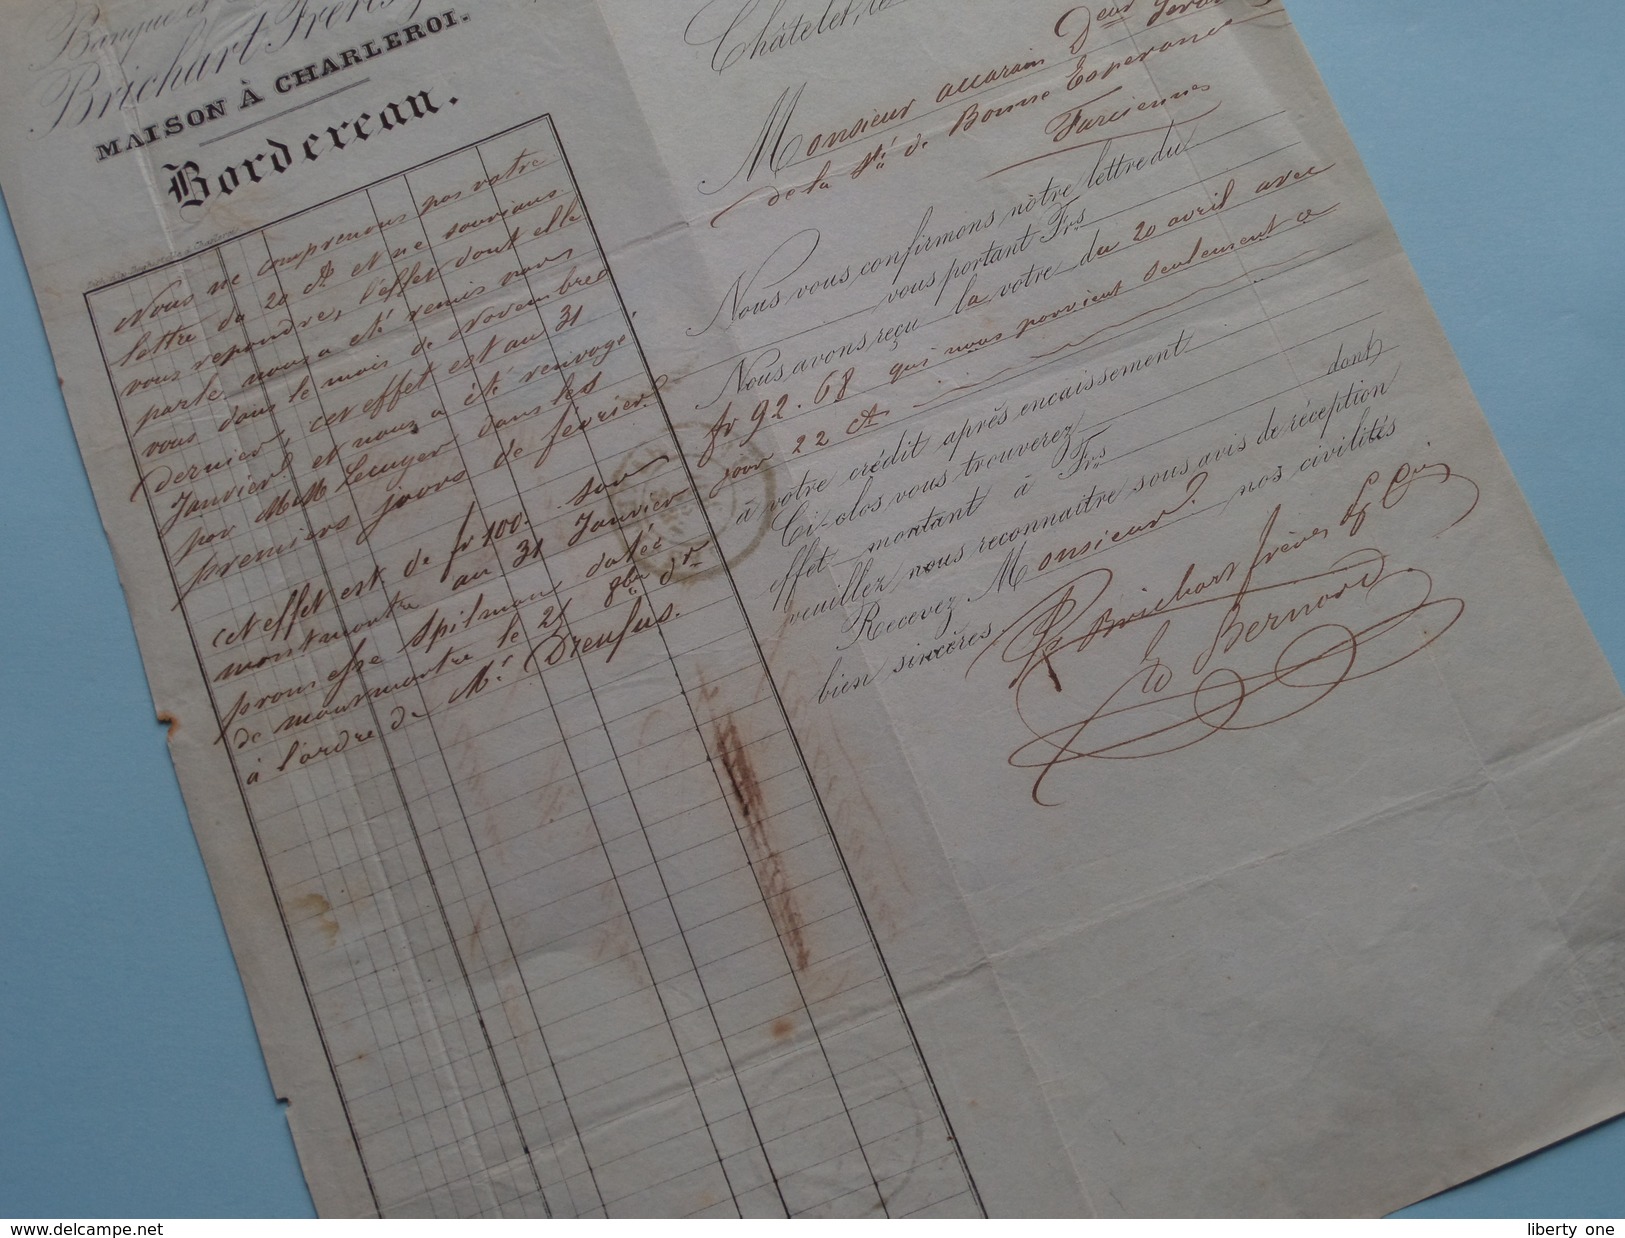 Banque et
Brichart Frères
MAISON À CHARLEROI.
Bordereau.
Nous ne comprenons pas votre
lettre du 20 ct et ne saurions
vous repondre, l'effet dont elle
parle nous a été remis par
vous dans le mois de novembre
dernier, cet effet est au 31
Janvier et nous a été renvoyé
par MM dans les
premiers jours de février.
cet effet est de fr 100. sur
montmartre au 31 Janvier
prousse Spilman datée
de montmartre le 25 8bre dr
à l'ordre de Mr Dreufus.
Châtelet, le
Monsieur Deur Gérant
de la Sté de Bonne Esperance
Farciennes
Nous vous confirmons nôtre lettre du
vous portant Frs
Nous avons reçu la votre du 20 avril avec
fr 92.68 qui nous parvient seulement a
jour 22 ct
à votre crédit après encaissement
Ci-clos vous trouverez dont
effet montant à Frs
veuillez nous reconnaître sous avis de réception
Recevez Monsieur nos civilités
bien sincères
Pr Brichart frères & Cie
E Bernard
liberty one